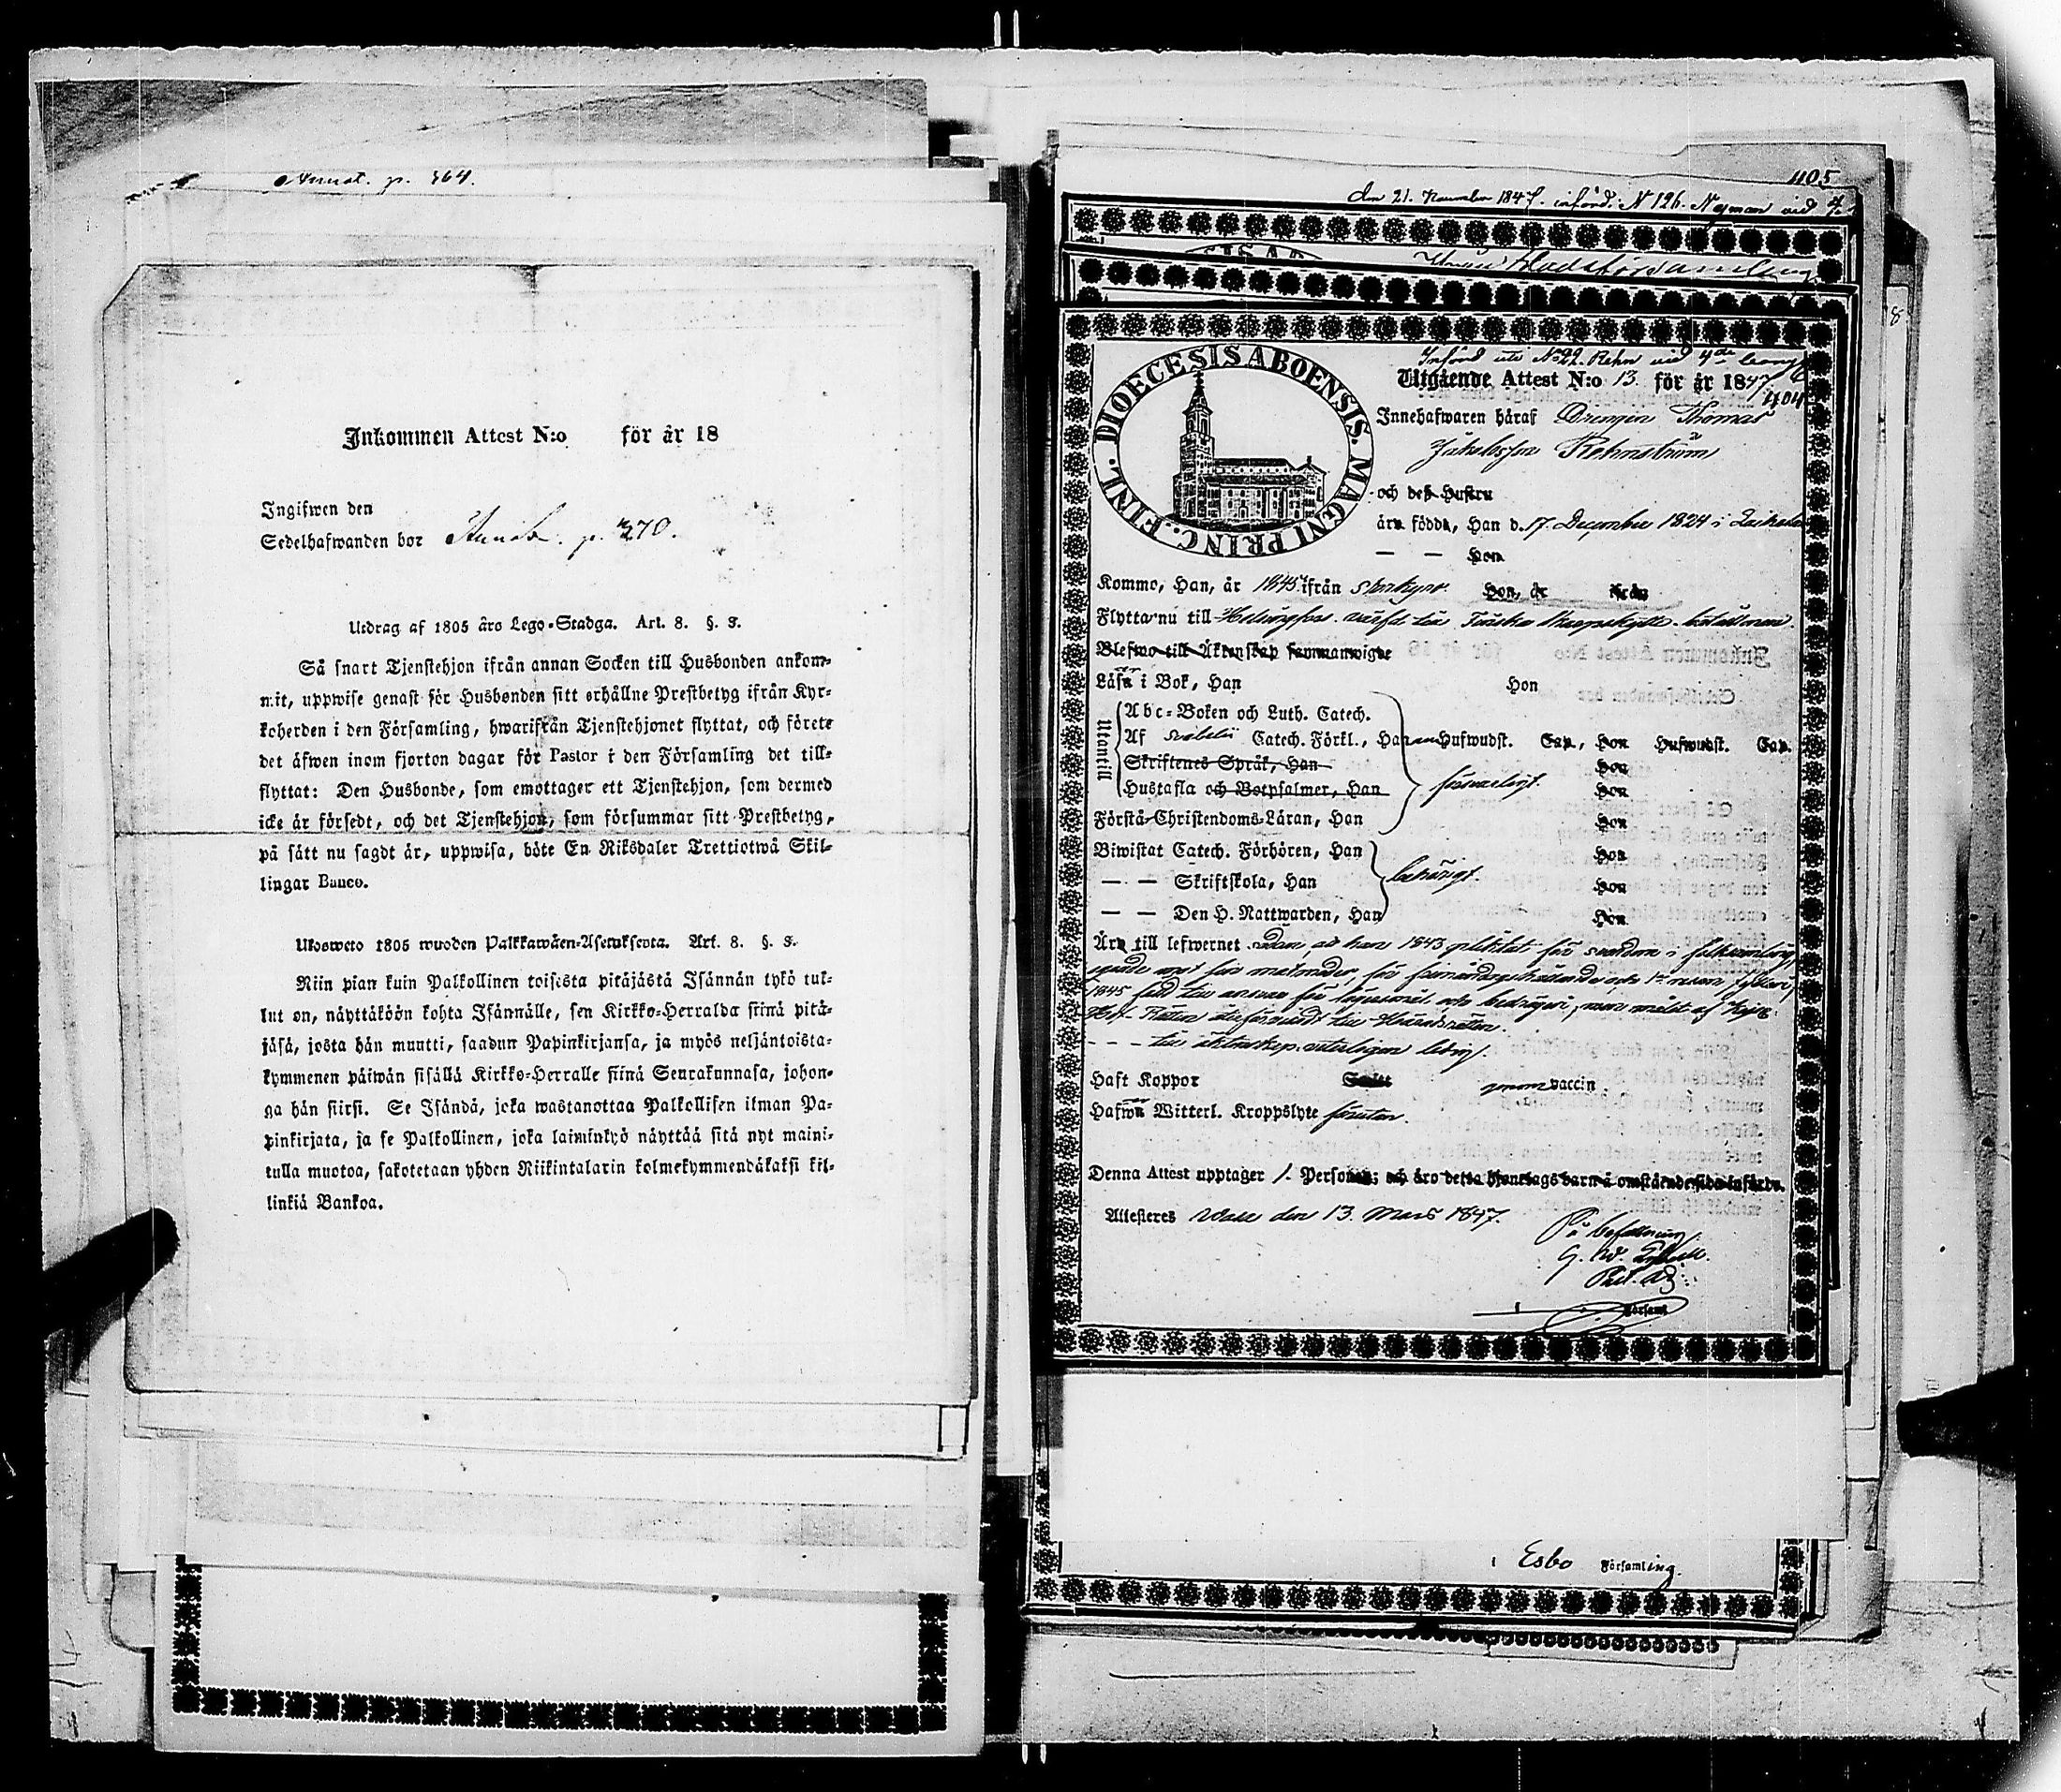 Annot. p. 364.
Inkommen Attest N:o för år 18
Ingifwen den
Sedelhafwanden bor Annot. p. 270.
Utdrag af 1805 åro Lego-Stadga. Art. 8. §. 3.
Så snart Tjenstehjon ifrån annan Socken till Husbonden ankom-
mit, uppwise genast för Husbonden sitt erhållne Prestbetyg ifrån Kyr-
koherden i den Församling, hwarifrån Tjenstehjonet flyttat, och förete
det äfwen inom fjorton dagar för Pastor i den Församling det till-
flyttat: Den Husbonde, som emottager ett Tjenstehjon, som dermed
icke är försedt, och det Tjenstehjon, som försummar sitt Prestbetyg,
på sätt nu sagdt är, uppwisa, böte En Riksdaler Trettiotwå Skil-
lingar Banco.
Ulosweto 1805 wuoden Palkkawäen-Asetuksesta. Art. 8. §. 3.
Niin pian kuin Palkollinen toisesta pitäjästä Isännän tykö tul-
lut on, näyttäköön kohta Isännälle, sen Kirkko-Herralda siinä pitä-
jäsä, josta hän muutti, saadun Papinkirjansa, ja myös neljäntoista-
kymmenen päiwän sisällä Kirkko-Herralle siinä Seurakunnasa, johon-
ga hän siirsi. Se Isändä, joka wastanottaa Palkollisen ilman Pa-
pinkirjata, ja se Palkollinen, joka laiminlyö näyttää sitä nyt maini-
tulla muotoa, sakotetaan yhden Riikintalarin kolmekymmendäkaksi kil-
linkiä Bankoa.
405
den 21. November 1847. införd: N 126. Nyman vid
Stadsförsamling
DIOECESIS ABOENSIS. MAGNI PRINC. FINL.
Införd uti No 22. Rehn vid 4de
Utgående Attest N:o 13. för år 1847
404
Innehafwaren häraf Drengen Thomas
Jakobsson Rehnström
och deß Hustru
äro födda, Han d. 17. December 1824 i
— — Hon
Kommo, Han, år 1845 ifrån Storkyro Hon, år från
Flytta nu till Helsingfors Finska Skarpskytte bataillonen.
Blefwo till Äktenskap sammanwigde
Läsa i Bok, Han Hon
Utantill
Abc-Boken och Luth. Catech.
Af Svebelii Catech. Förkl., Han Hufwudst. Cap., Hon Hufwudst. Cap.
Skriftenes Språk, Han Hon
Hustafla och Botpsalmer, Han försvarligt. Hon
Förstå Christendoms-Läran, Han Hon
Biwistat Catech. Förhören, Han Hon
— — Skriftskola, Han behörigt. Hon
— — Den H. Nattwarden, Han Hon
Äro till lefwernet sådan, att han 1843 pliktat för svordom i folksamling,
för och 1sta resan fylleri
1845 för lägersmål och bedrägeri, men målet af Kejs.
Hof-Rätten återförvist till Häradsrätten.
- - - till äktenskap veterligen ledig.
Haft Koppor Smitt genom vaccin.
Hafwa Witterl. Kroppslyte förutan.
Denna Attest upptager 1. Personer; och äro detta Hjonelags barn å omstående sida införde.
Attesteres Wasa den 13. Mars 1847.
På befallning
G. W.
Past. Adj.
Församl
i Esbo Församling.